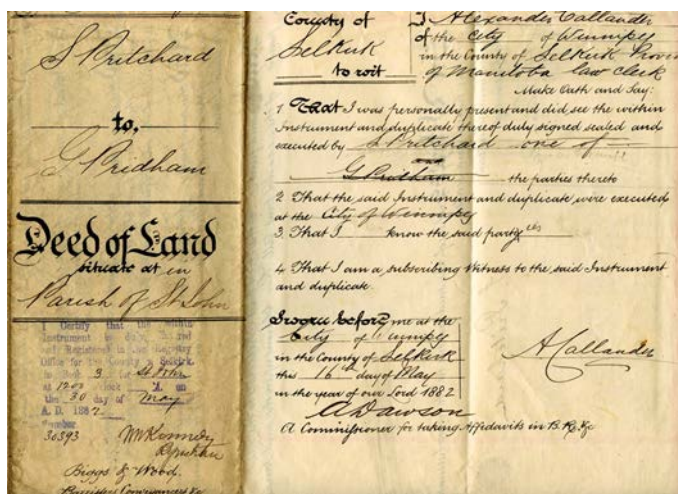 S Pritchard
to,
G Pridham
Deed of Land
situate at in
Parish of St John
I Certify that the within
Instrument is duly
and Registered in the Registry
Office for the County of Selkirk.
in Book 3 St John
at 1200 o'clock on
the 30 day of May
A. D. 1882
Number
30393
WN Kennedy
Biggs & Wood.
Barristers Conveyancers &c
County of
Selkirk
to wit
I Alexander Callander
of the City of Winnipeg
in the County of Selkirk
of Manitoba law clerk
Make Oath and Say:
1 That I was personally present and did see the within
Instrument and duplicate thereof duly signed sealed and
executed by S Pritchard one of
and
G Pridham the parties thereto
2 That the said Instrument and duplicate were executed
at the City of Winnipeg
3. That I know the said parties
4 That I am a subscribing Witness to the said Instrument
and duplicate.
Sworn before me at the
City of Winnipeg
in the County of Selkirk
this 16th day of May
in the year of our Lord 1882
A Callander
A Dawson
A Commissioner for taking Affidavits in B.R. &c